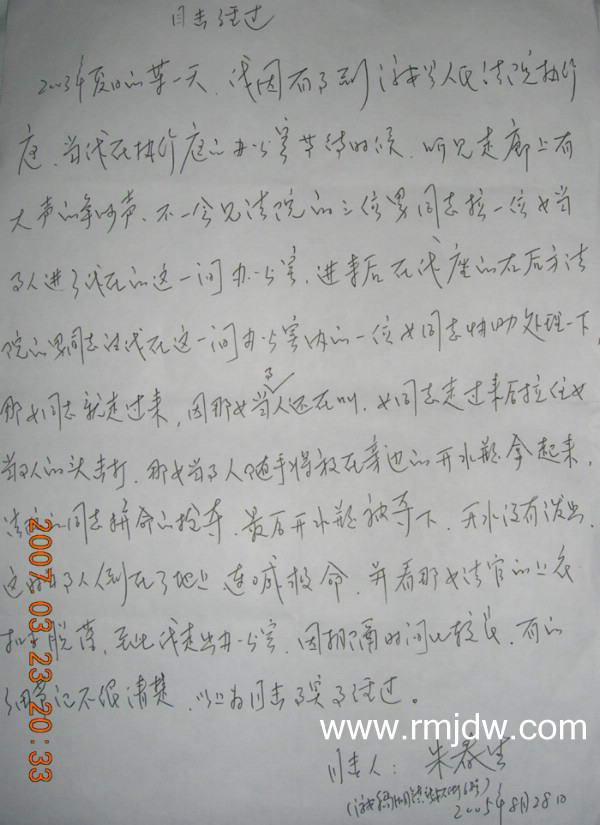 目击经过
2003年夏日的某一天,我因有事到 人民法院执行
庭,当我在执行庭的办公室等待时候,听见走廊上有
大声的争吵声,不一会见法院的三位男同志拉一位女当
事人进了我在的这一间办公室,进来后在我座的右后方法
院的男同志让我在这一间办公室内的一位女同志协助处理一下,
那女同志就走过来,因那女当事人还在叫,女同志走过来后拉住女
当事人的头击打,那女当事人随手将放在旁边的开水瓶拿起来,
法院的同志拼命的抢夺,最后开水瓶被夺下,开水没有泼出,
这时当事人倒在了地上连喊救命,并看那女法官的上衣
扣子脱落,至此我走出办公室,因相隔时间比较长,有的
细节记不很清楚,以上为目击事实经过。
目击人:朱春生
2005年8月28日
2007.03.23 20:33
www.rmjdw.com